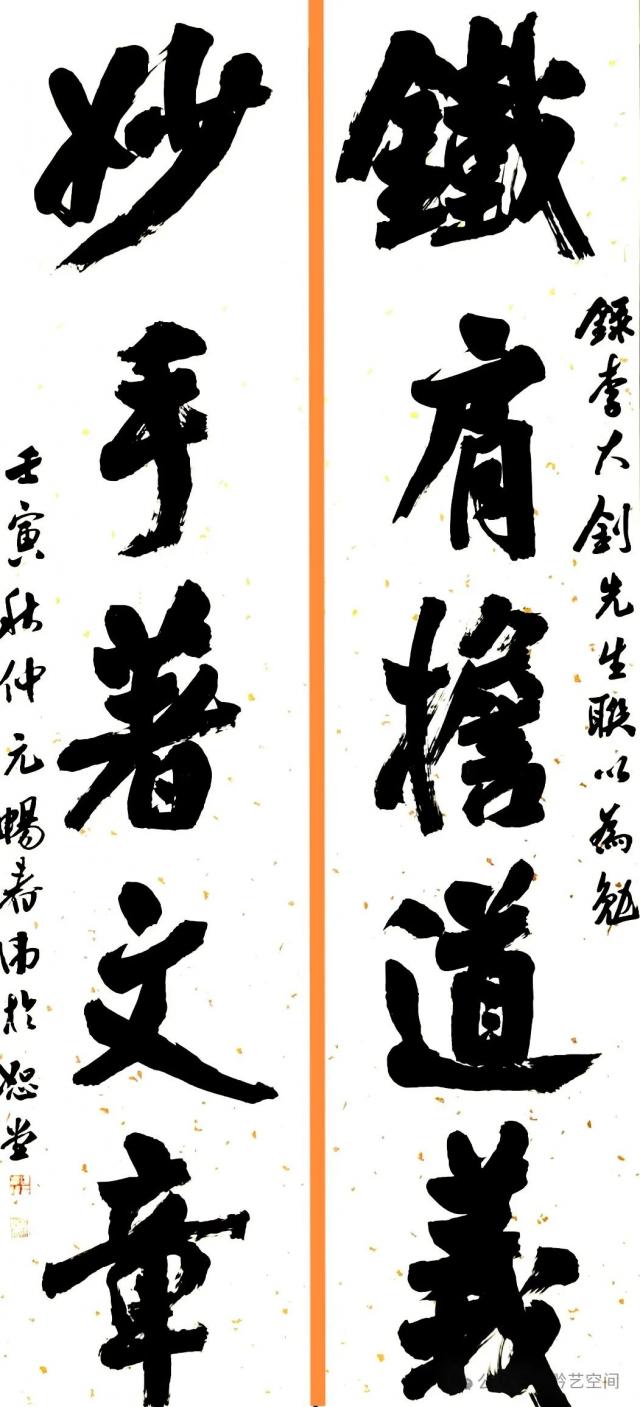 鐵肩擔道義
錄李大釗先生聯以為勉
妙手著文章
壬寅秋仲元暢春沛於恕堂
公众号
矜艺空间